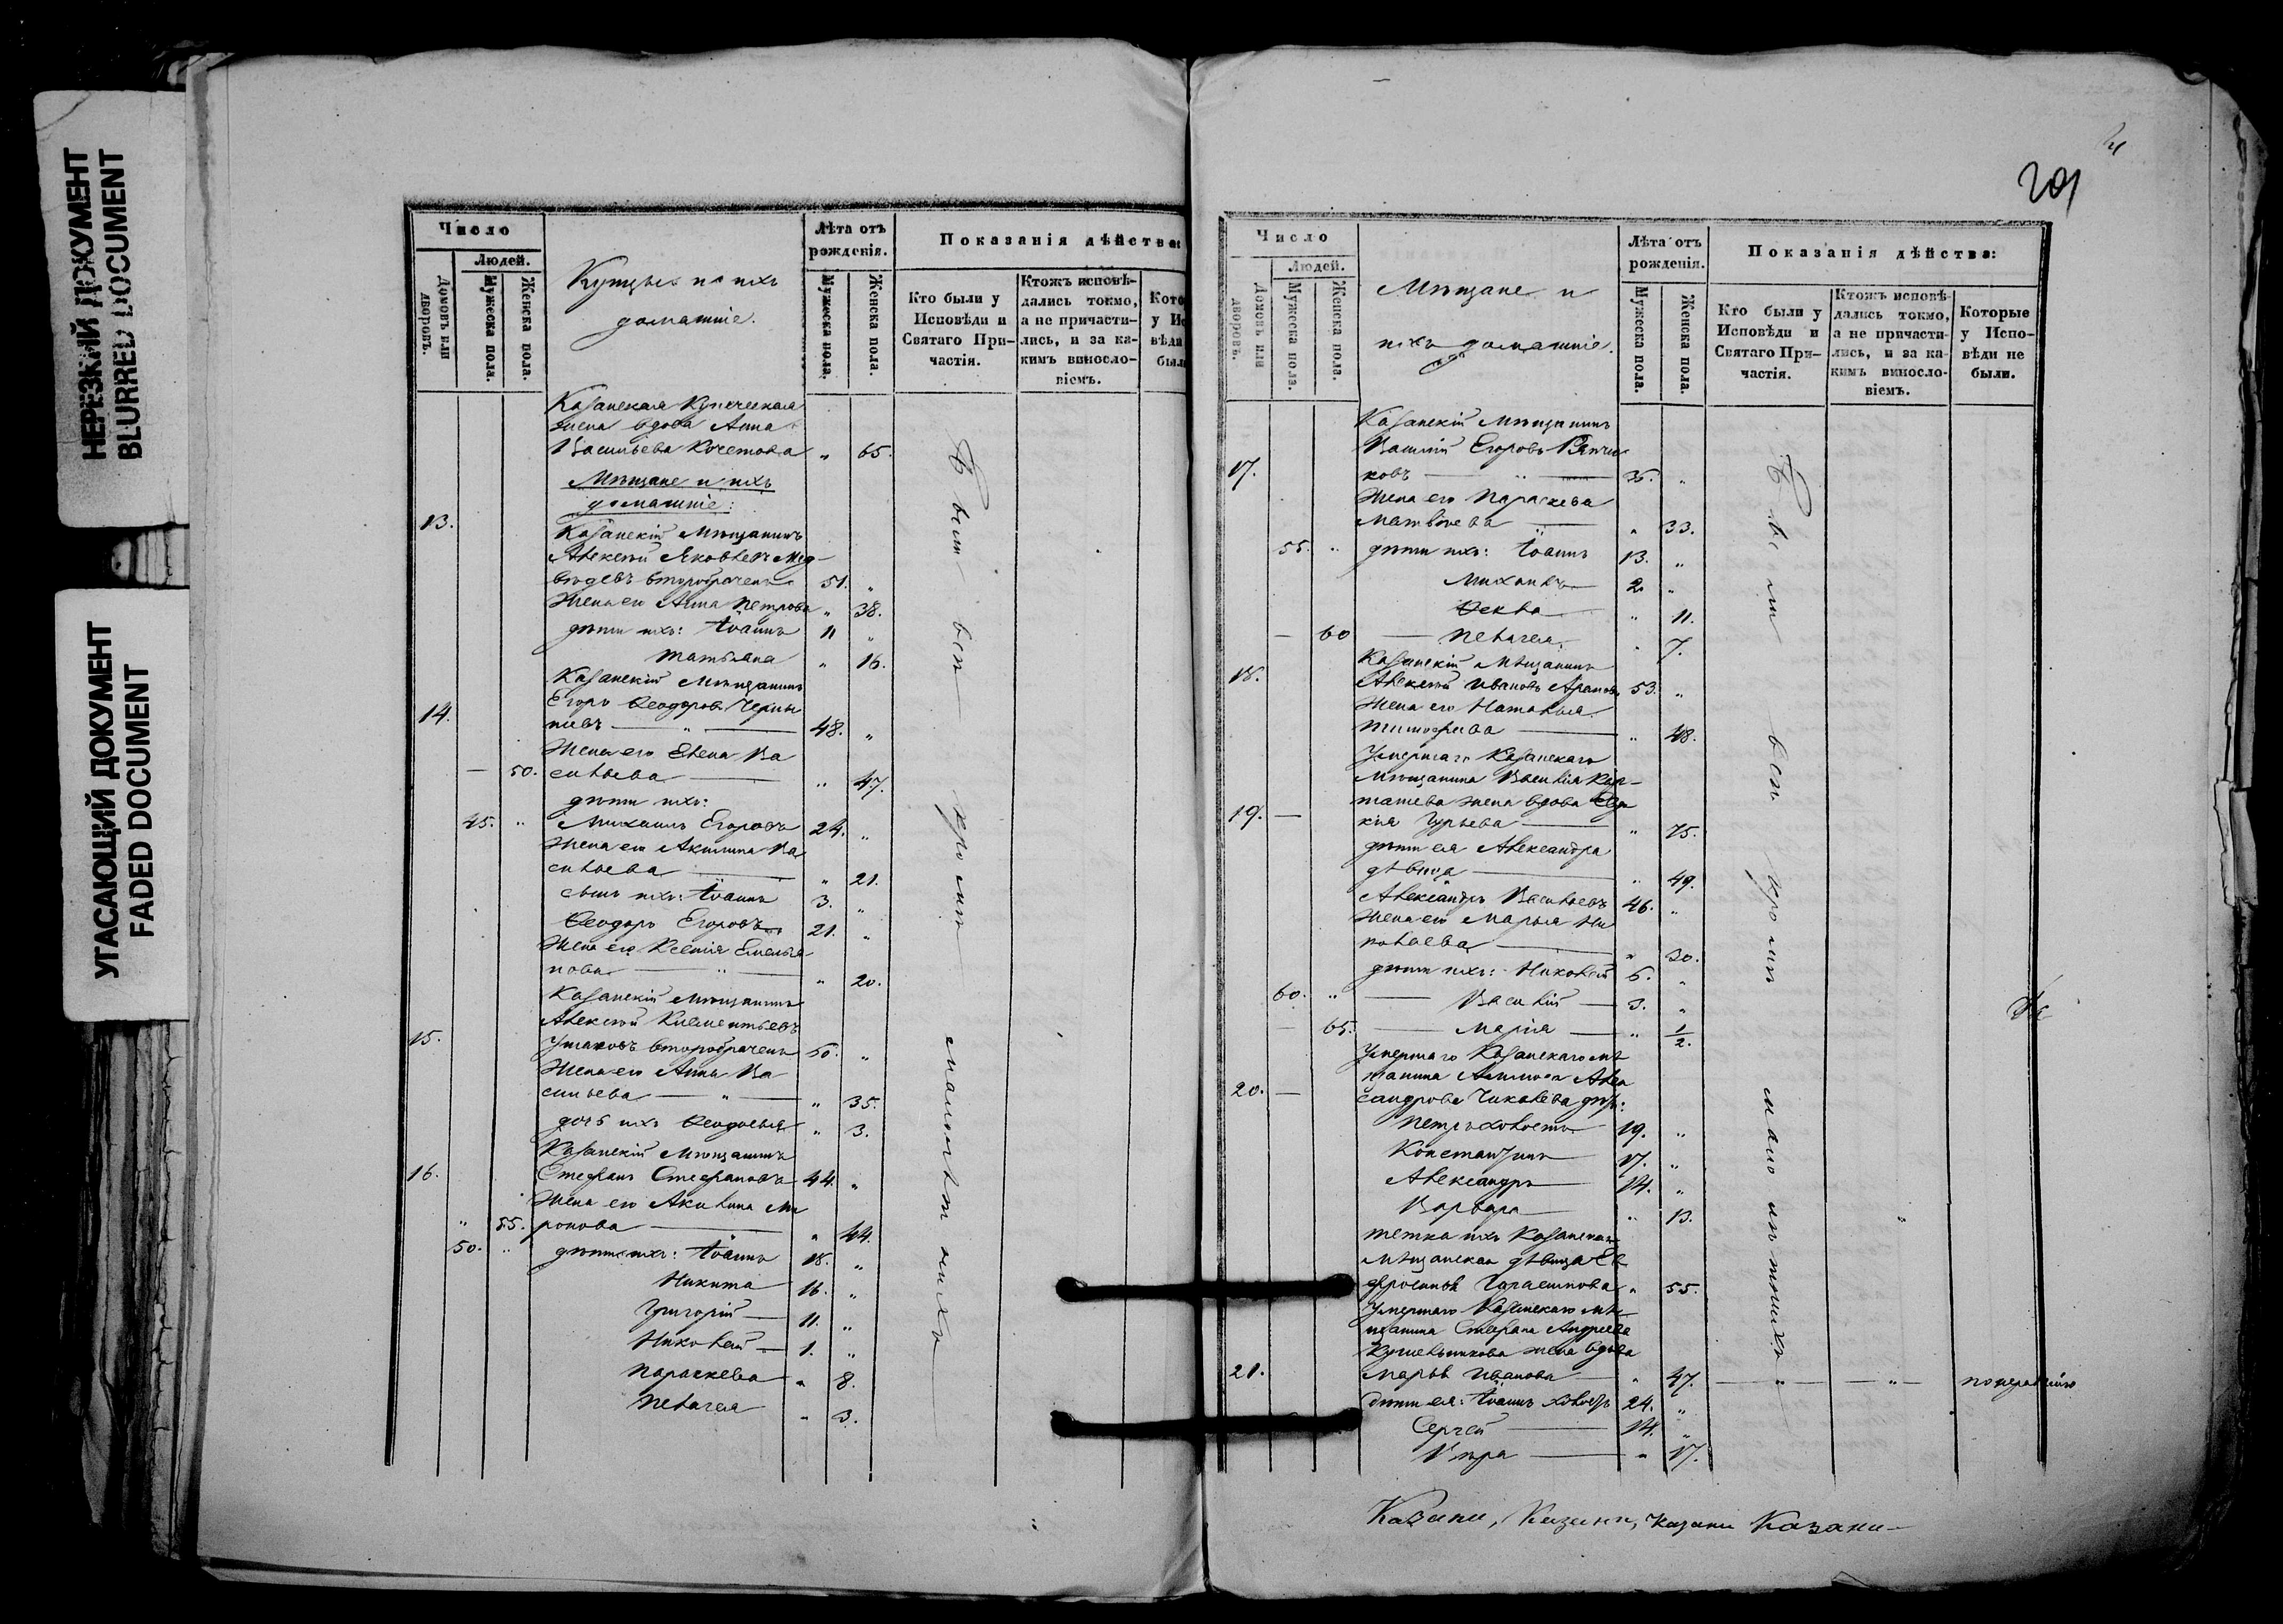 НЕРЕЗКИЙ ДОКУМЕНТ
BLURRED DOCUMENT
УГАСАЮЩИЙ ДОКУМЕНТ
FADED DOCUMENT
Число
Людей.
Домовъ или дворовъ.
Мужеска пола.
Женска пола.
Купцы и ихъ
домашніе.
Лѣта отъ
рожденія.
Мужеска пола.
Женска пола.
Показанія дѣйства:
Кто были у
Исповѣди и
Святаго При-
частія.
Ктожъ исповѣ-
дались токмо,
а не причасти-
лись, и за ка-
кимъ винословіемъ.
Казанская Купеческая
жена вдова Анна
Васильева Кочетова " 65.
Мѣщане и ихъ
домашніе:
13.
Казанскій Мѣщанинъ
Алексѣй Яковлевъ Мед-
вѣдевъ второбраченъ 51. "
Жена его Анна Петрова " 38.
дѣти ихъ: Іоаннъ 11 "
Татьяна " 16.
Казанскій Мѣщанинъ
Егоръ Ѳеодоровъ Черны
14. шевъ — " — 48. "
Жена его Елена Ва
— 50. сильева — " 47.
дѣти ихъ:
45. " Михаилъ Егоровъ 24. "
Жена его Акилина Ва
сильева — " 21.
сынъ ихъ: Іоаннъ 3. "
Ѳеодоръ Егоровъ 21. "
Жена его Ксенія Емелья
нова — " — " 20.
Казанскій Мѣщанинъ
Алексѣй Климентьевъ
15. Ушаковъ второбраченъ 50. "
Жена его Анна Ва
сильева — " — " 35.
дочь ихъ Ѳеодосья " 3.
Казанскій Мѣщанинъ
16. Стефанъ Стефановъ 44. "
Жена его Акилина Ми
" 55. ронова — " 44.
50. " дѣти ихъ: Іоаннъ 18. "
Никита 16. "
Григорій — 11. "
Николай — 1. "
Параскева " 8.
Пелагея " 3.
Были всѣ кромѣ малолѣтнихъ
201
Число
Людей.
Домовъ или дворовъ.
Мужеска пола.
Женска пола.
Мѣщане и
ихъ домашніе.
Лѣта отъ
рожденія.
Мужеска пола.
Женска пола.
Показанія дѣйства:
Кто были у
Исповѣди и
Святаго При-
частія.
Ктожъ исповѣ-
дались токмо,
а не причасти-
лись, и за ка-
кимъ винословіемъ.
Которые
у Испо-
вѣди не
были.
Казанскій Мѣщанинъ
Василій Егоровъ
17. ковъ — " — "
Жена его Параскева
Матвѣева — " 33.
55. " дѣти ихъ: Іоаннъ 13. "
Михаилъ 2. "
Ѳекла " 11.
— 60 — Пелагея " 7.
Казанскій Мѣщанинъ
18. Алексѣй Ивановъ 53. "
Жена его Наталья
Тимофеева — " 48.
Умершаго Казанскаго
Мѣщанина Василья Кар-
ташева жена вдова Евдо
19. — кія Гурьева — " 75.
дѣти ея Александра
дѣвица — " 49.
Александръ Васильевъ 46. "
Жена его Марья Ни
колаева — " 30.
дѣти ихъ: Николай 5. "
60. " — Василій — 3. "
— 65. — Марія — " 1/2.
Умершаго Казанскаго мѣ
щанина Алексѣя Алек
20. — сандрова Чикалева дѣти:
Петръ холостъ 19. "
Константинъ 17. "
Александръ — 14. "
Варвара — " 13.
тетка ихъ Казанская
Мѣщанская дѣвица Ев
фросинья Герасимова " 55.
Умершаго Казанскаго мѣ-
щанина Стефана Андреева
жена вдова
21. Марья Иванова — " 47. — " — — " — по нерадѣнію
дѣти ея: Іоаннъ холостъ 24. "
Сергѣй — 14. "
Вѣра — " 17.
Были всѣ кромѣ малолѣтнихъ
Казани, Казани, Казани Казани